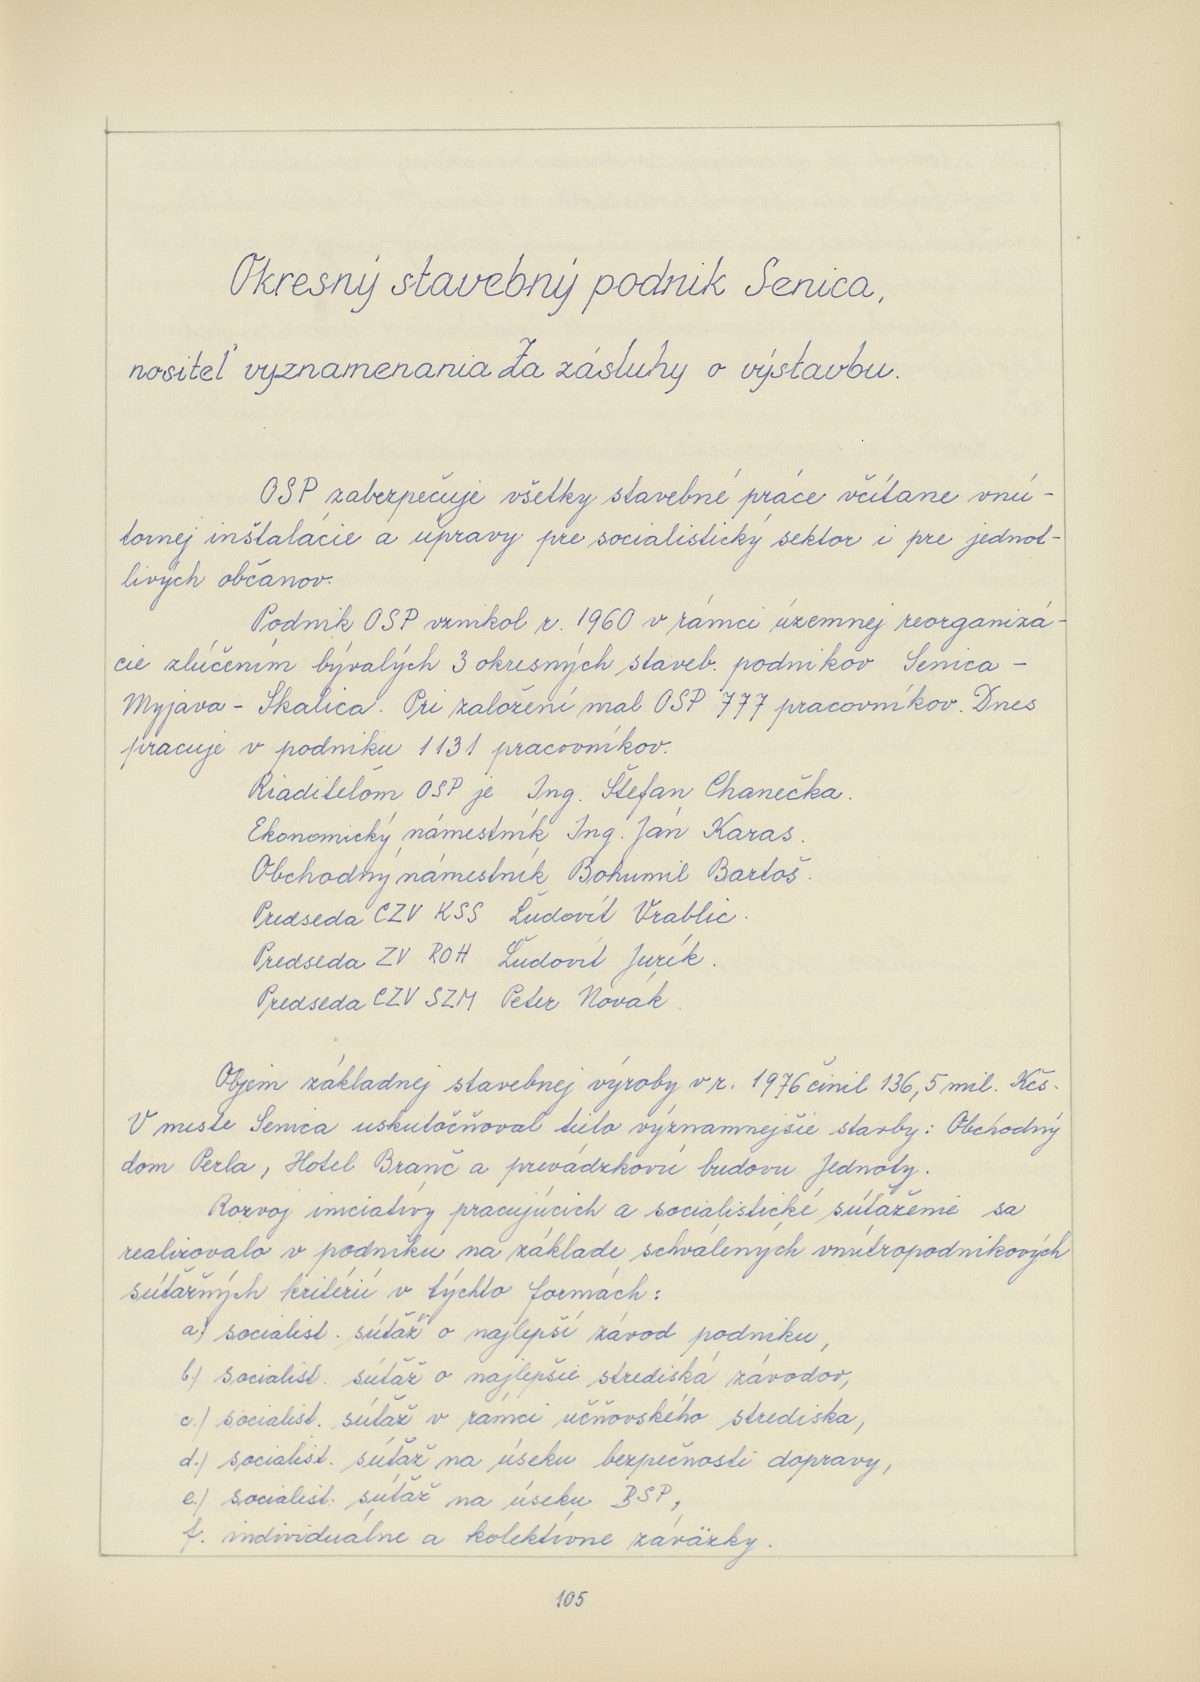 Okresný stavebný podnik Senica,
nositeľ vyznamenania Za zásluhy o výstavbu.
OSP zabezpečuje všetky stavebné práce včítane vnú-
tornej inštalácie a úpravy pre socialistický sektor i pre jednot-
livých občanov.
Podnik OSP vznikol r. 1960 v rámci územnej reorganizá-
cie zlúčením bývalých 3 okresných staveb. podnikov Senica -
Myjava - Skalica. Pri založení mal OSP 777 pracovníkov. Dnes
pracuje v podniku 1131 pracovníkov.
Riaditeľom OSP je Ing. Štefan Chanečka.
Ekonomický námestník Ing. Ján Karas.
Obchodný námestník Bohumil Bartoš.
Predseda CZV KSS Ľudovít Vrablic.
Predseda ZV ROH Ľudovít Jurík.
Predseda CZV SZM Peter Novák.
Objem základnej stavebnej výroby v r. 1976 činil 136,5 mil. Kčs.
V meste Senica uskutočňoval tieto významnejšie stavby: Obchodný
dom Perla, Hotel Branč a prevádzkovú budovu Jednoty.
Rozvoj iniciatívy pracujúcich a socialistické súťaženie sa
realizovalo v podniku na základe schválených vnútropodnikových
súťažných kritérií v týchto formách:
a) socialist. súťaž o najlepší závod podniku,
b.) socialist. súťaž o najlepšie strediská závodov,
c.) socialist. súťaž v rámci učňovského strediska,
d.) socialist. súťaž na úseku bezpečnosti dopravy,
e.) socialist. súťaž na úseku BSP,
f. individuálne a kolektívne záväzky.
105